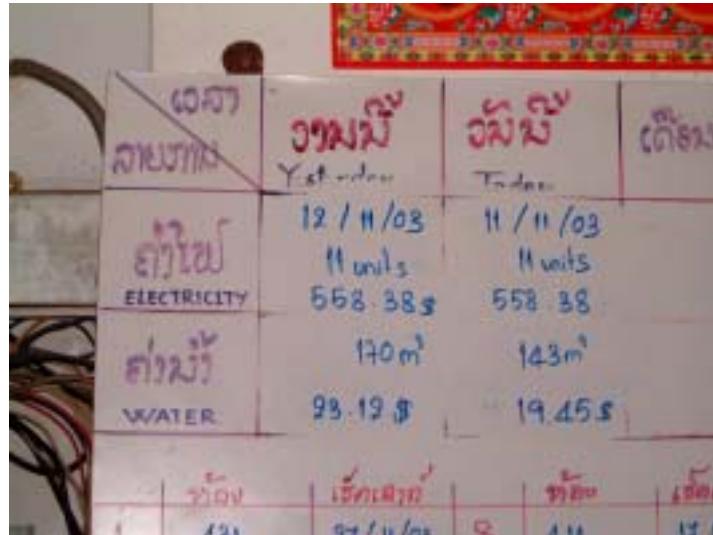 ເວລາ
ລາຍການ
ງານນີ້
Ysterday
ວັນນີ້
Today
ຄ່າໄຟ
ELECTRICITY
12/11/03
11 units
558.38$
11/11/03
11 units
558.38
ຄ່ານ້ຳ
WATER
170m³
23.12$
143m³
19.45$
ຫ້ອງ
ຫ້ອງ
8